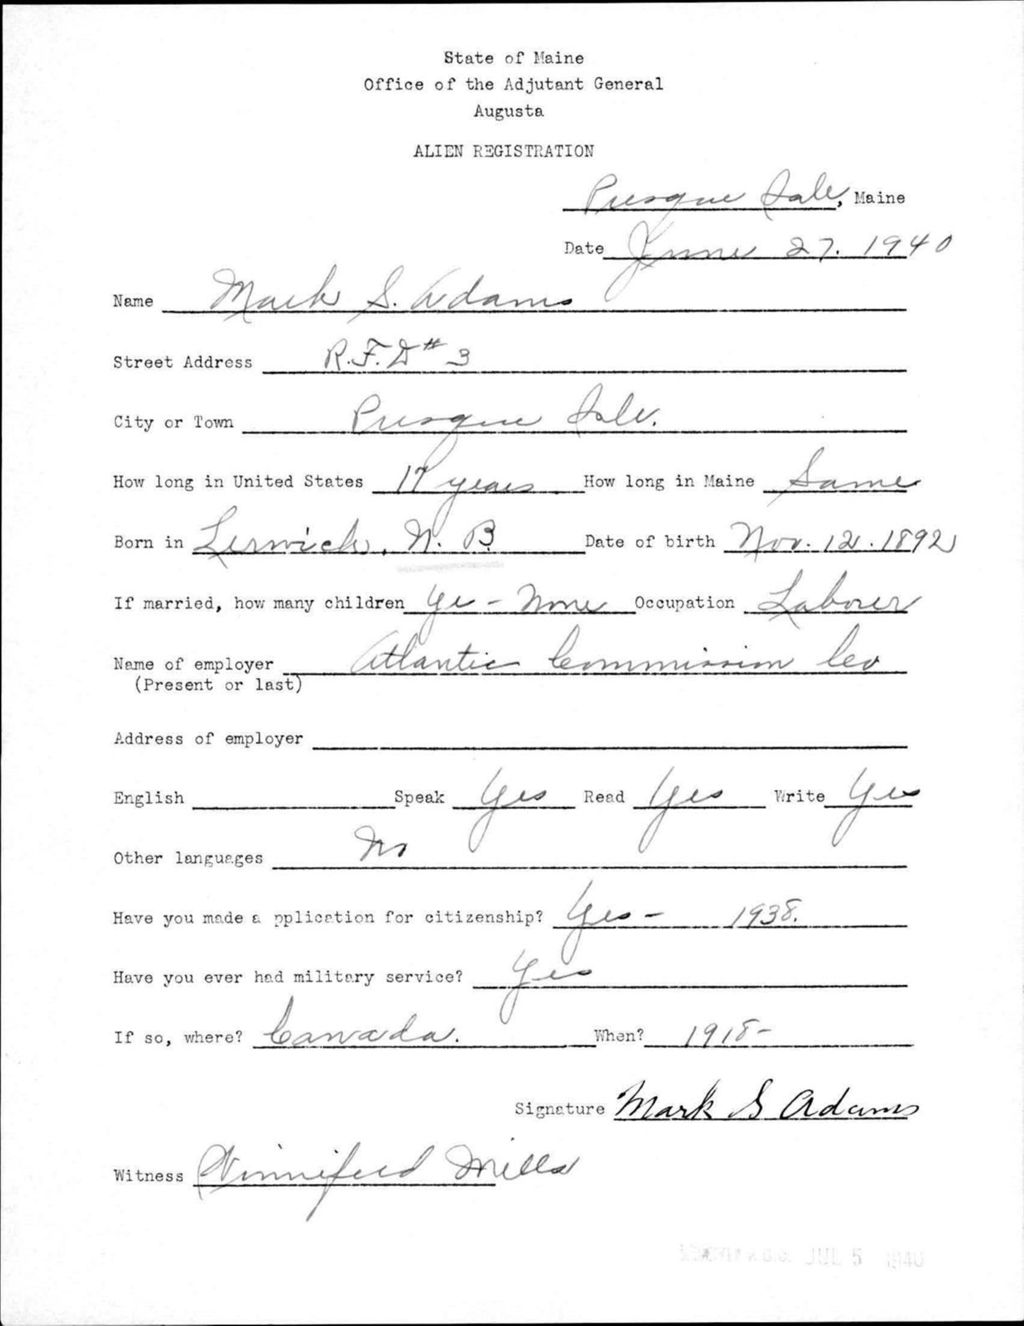 State of Maine
Office of the Adjutant General
Augusta
ALIEN REGISTRATION
Presque Isle, Maine
Date June 27. 1940
Name Mark S. Adams
Street Address R.F.D # 3
City or Town Presque Isle.
How long in United States 17 years How long in Maine Same
Born in Lerwick, N. B Date of birth Nov. 12. 1892
If married, how many children Yes - None Occupation Laborer
Name of employer Atlantic Commission Co
(Present or last)
Address of employer
English Speak Yes Read Yes Write Yes
Other languages No
Have you made a pplication for citizenship? Yes - 1938.
Have you ever had military service? Yes
If so, where? Canada. When? 1918-
Signature Mark S Adams
Witness Winnifred Mills
JUL 5 1940